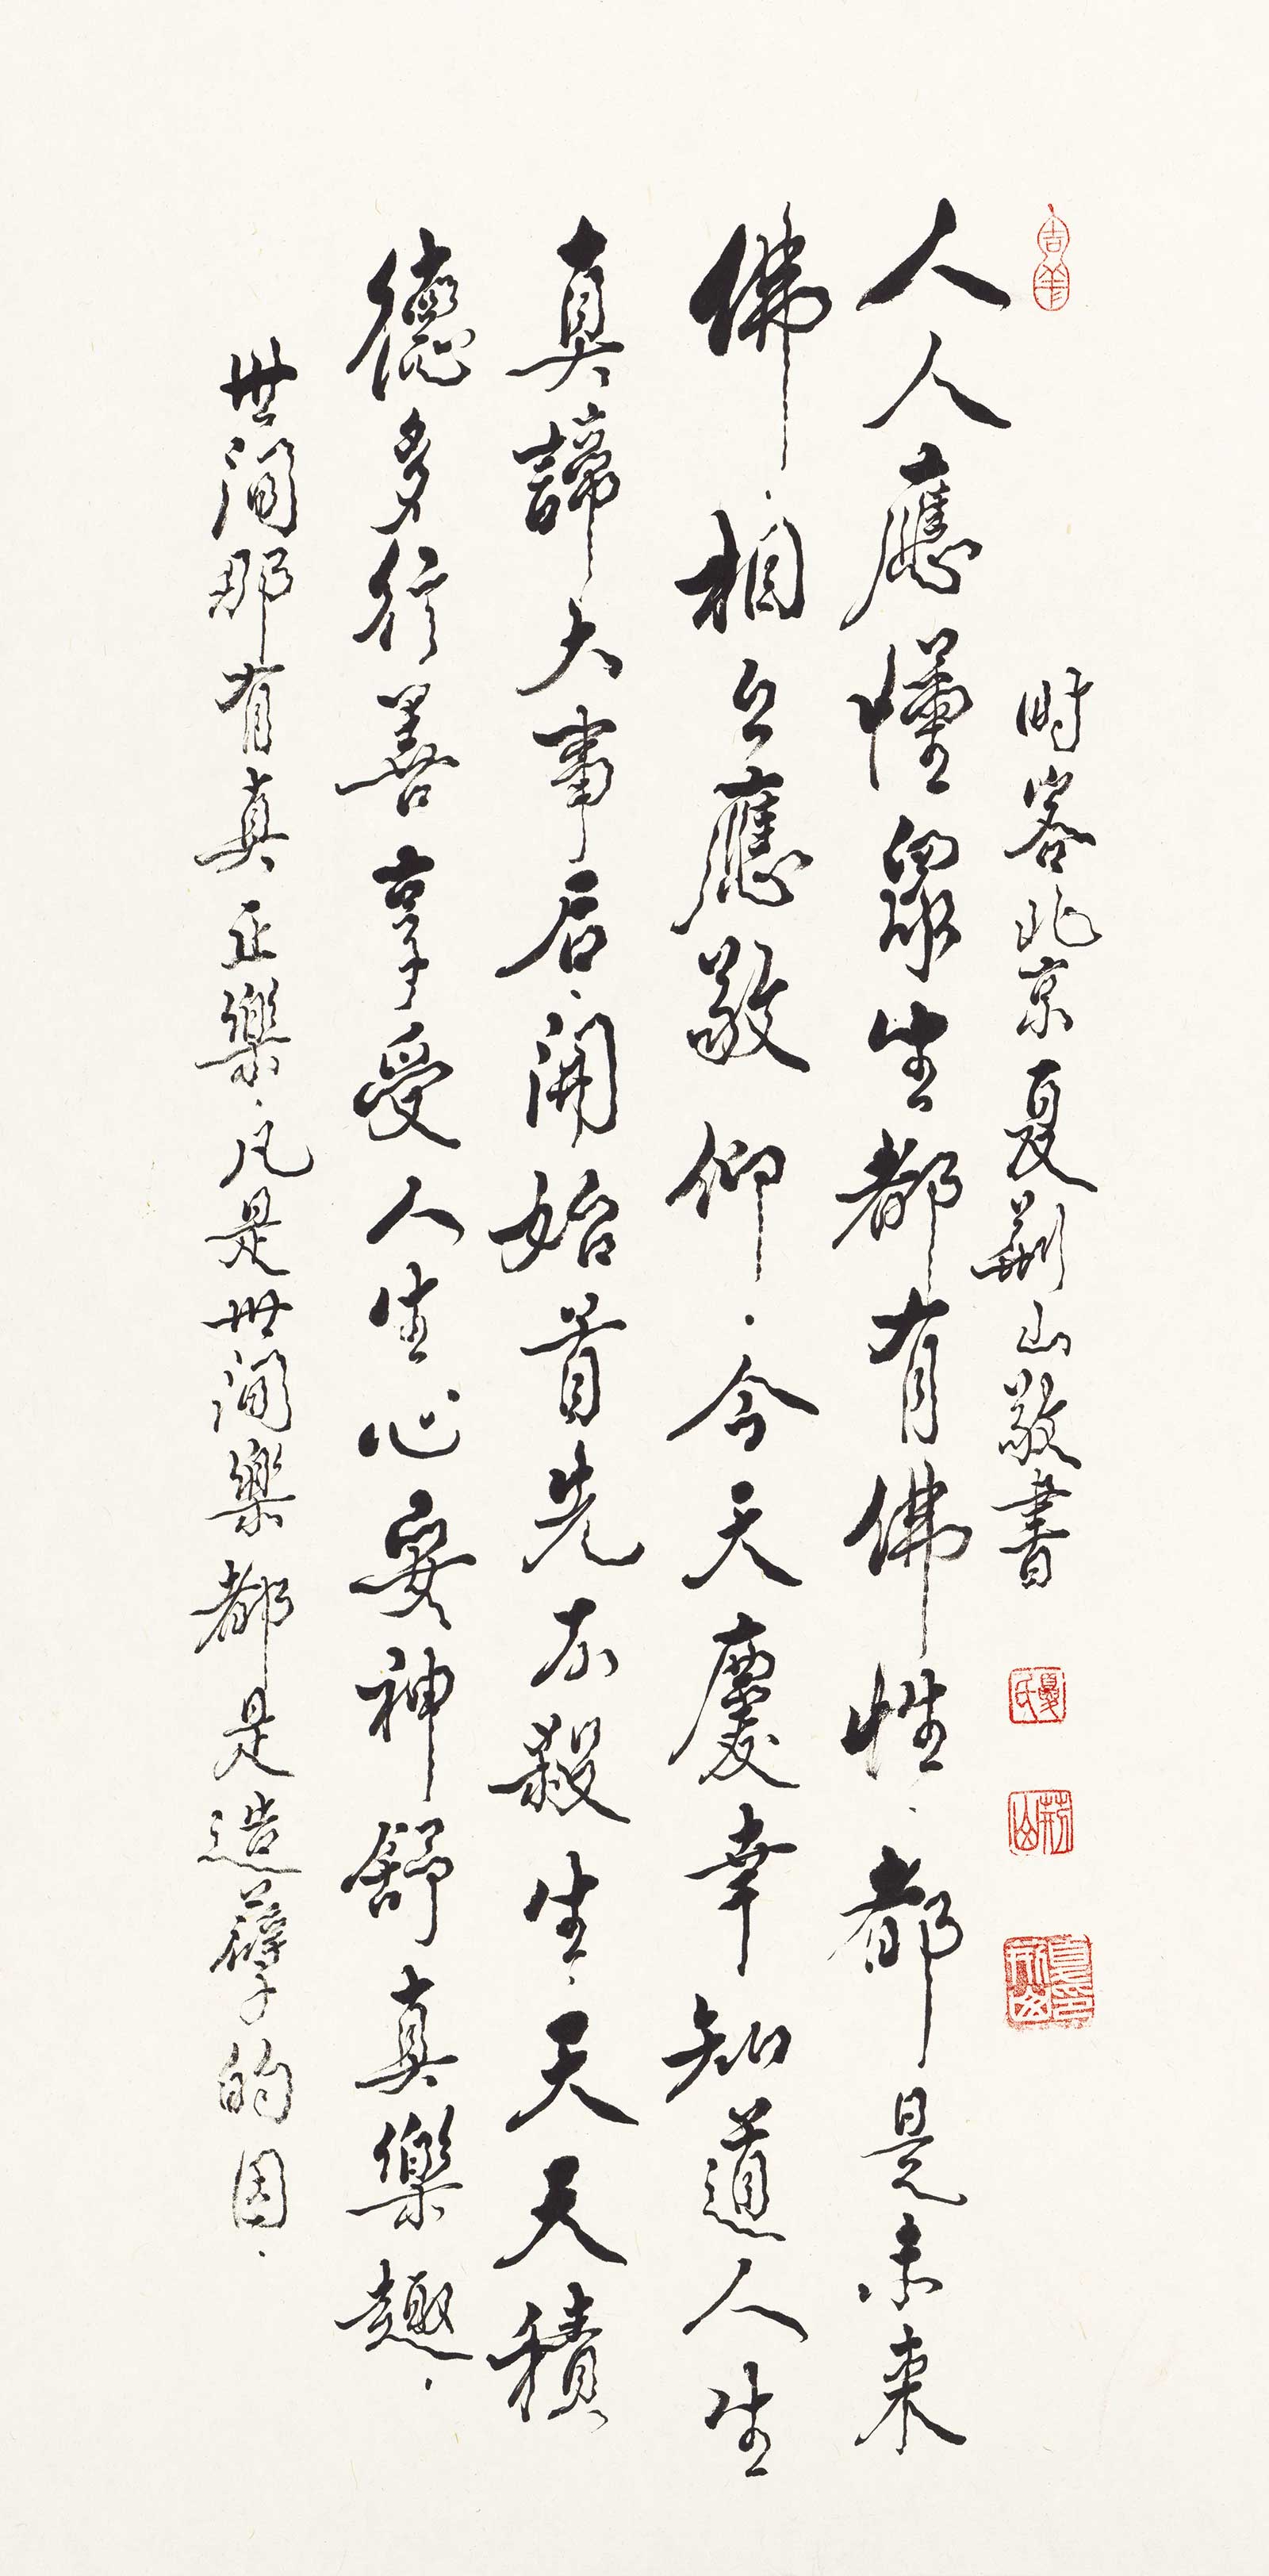 吉羊
时客北京夏荆山敬書
夏氏
荆山
夏荆山印
人人應懂眾生都有佛性、都是未来
佛、相互應敬仰、今天慶幸知道人生
真諦大事后、開始首先不殺生、天天積
德多行善享受人生心安神舒真樂趣、
世間那有真正樂、凡是世間樂都是造孽的因、